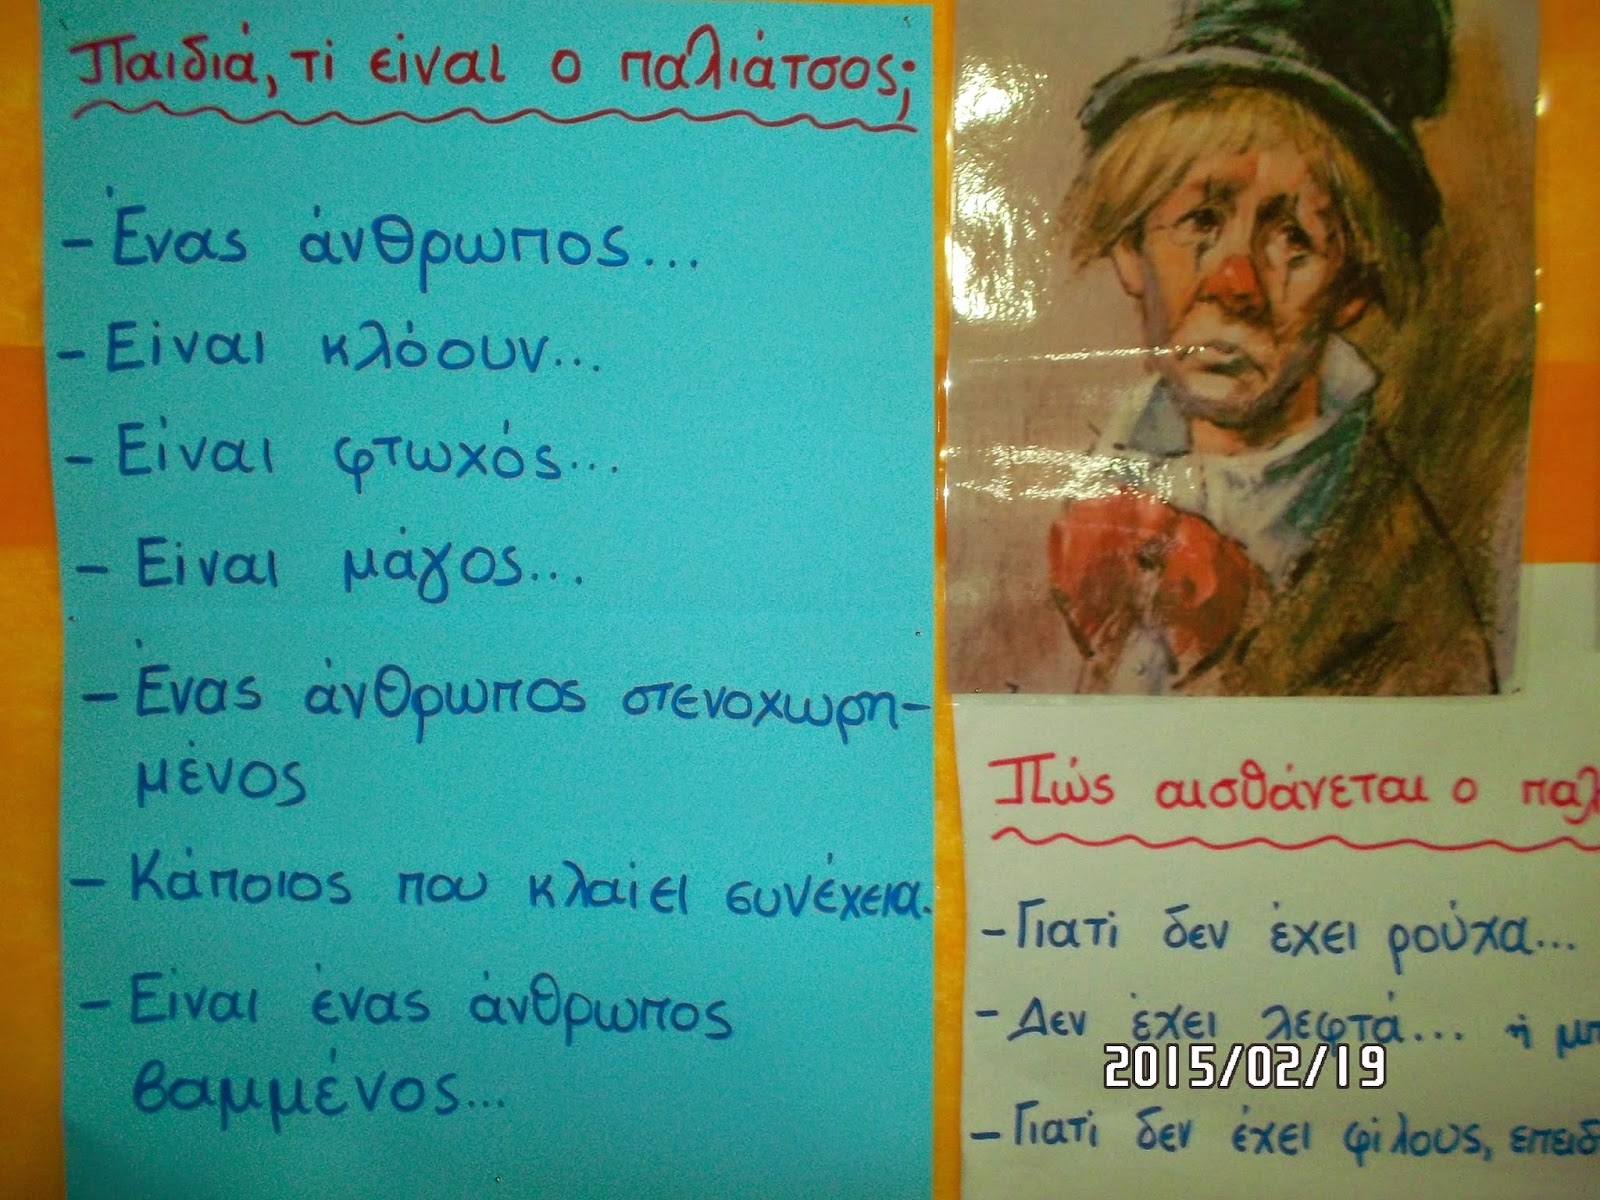 Παιδιά, τί είναι ο παλιάτσος;
- Ένας άνθρωπος...
- Είναι κλόουν...
- Είναι φτωχός...
- Είναι μάγος...
- Ένας άνθρωπος στενοχωρη-
μένος
- Κάποιος που κλαίει συνέχεια.
- Είναι ένας άνθρωπος
βαμμένος...
Πώς αισθάνεται ο
- Γιατί δεν έχει ρούχα...
- Δεν έχει λεφτά... ή
2015/02/19
- Γιατί δεν έχει φίλους,